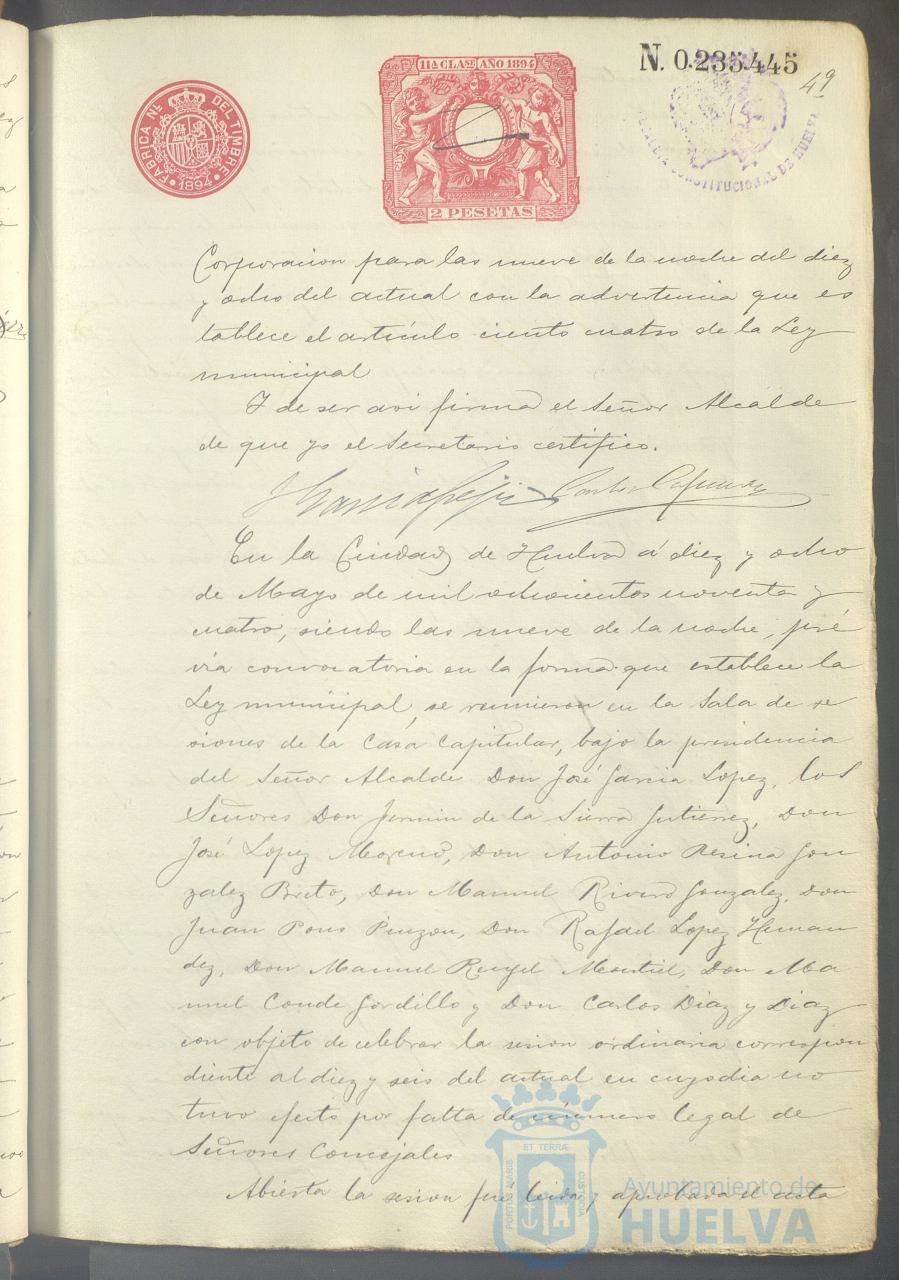 N. 0.235.445
49
11A CLASE AÑO 1894
FABRICA NL. DEL TIMBRE
1894
2 PESETAS
CONSTITUCIONAL DE HUELVA
Corporacion para las nueve de la noche del diez
y ocho del actual con la advertencia que es
tablece el artículo ciento cuatro de la Ley
municipal
Y de ser asi firma el Señor Alcalde
de que yo el Secretario certifico.
En la Ciudad de Huelva á diez y ocho
de Mayo de mil ochocientos noventa y
cuatro, siendo las nueve de la noche, pré
via convocatoria en la forma que establece la
Ley municipal, se reunieron en la Sala de se
siones de la Casa Capitular, bajo la presidencia
del Señor Alcalde Don José Garcia Lopez, los
Señores Don Fermin de la Sierra Gutierrez, Don
José Lopez Moreno, Don Antonio Resina Gon
zalez Brito, Don Manuel Rivero Gonzalez, Don
Juan Pons Pinzon, Don Rafael Lopez Hernan
dez, Don Manuel Rengel Montiel, Don Ma
nuel Conde Gordillo y Don Carlos Diaz y Diaz
con objeto de celebrar la sesion ordinaria correspon
diente al diez y seis del actual en cuyo dia no
tuvo efecto por falta de número legal de
Señores Concejales
Abierta la sesion fue leida y aprobada el acta
PORTUS MARIS ET TERRÆ CUSTODIA
Ayuntamiento de
HUELVA